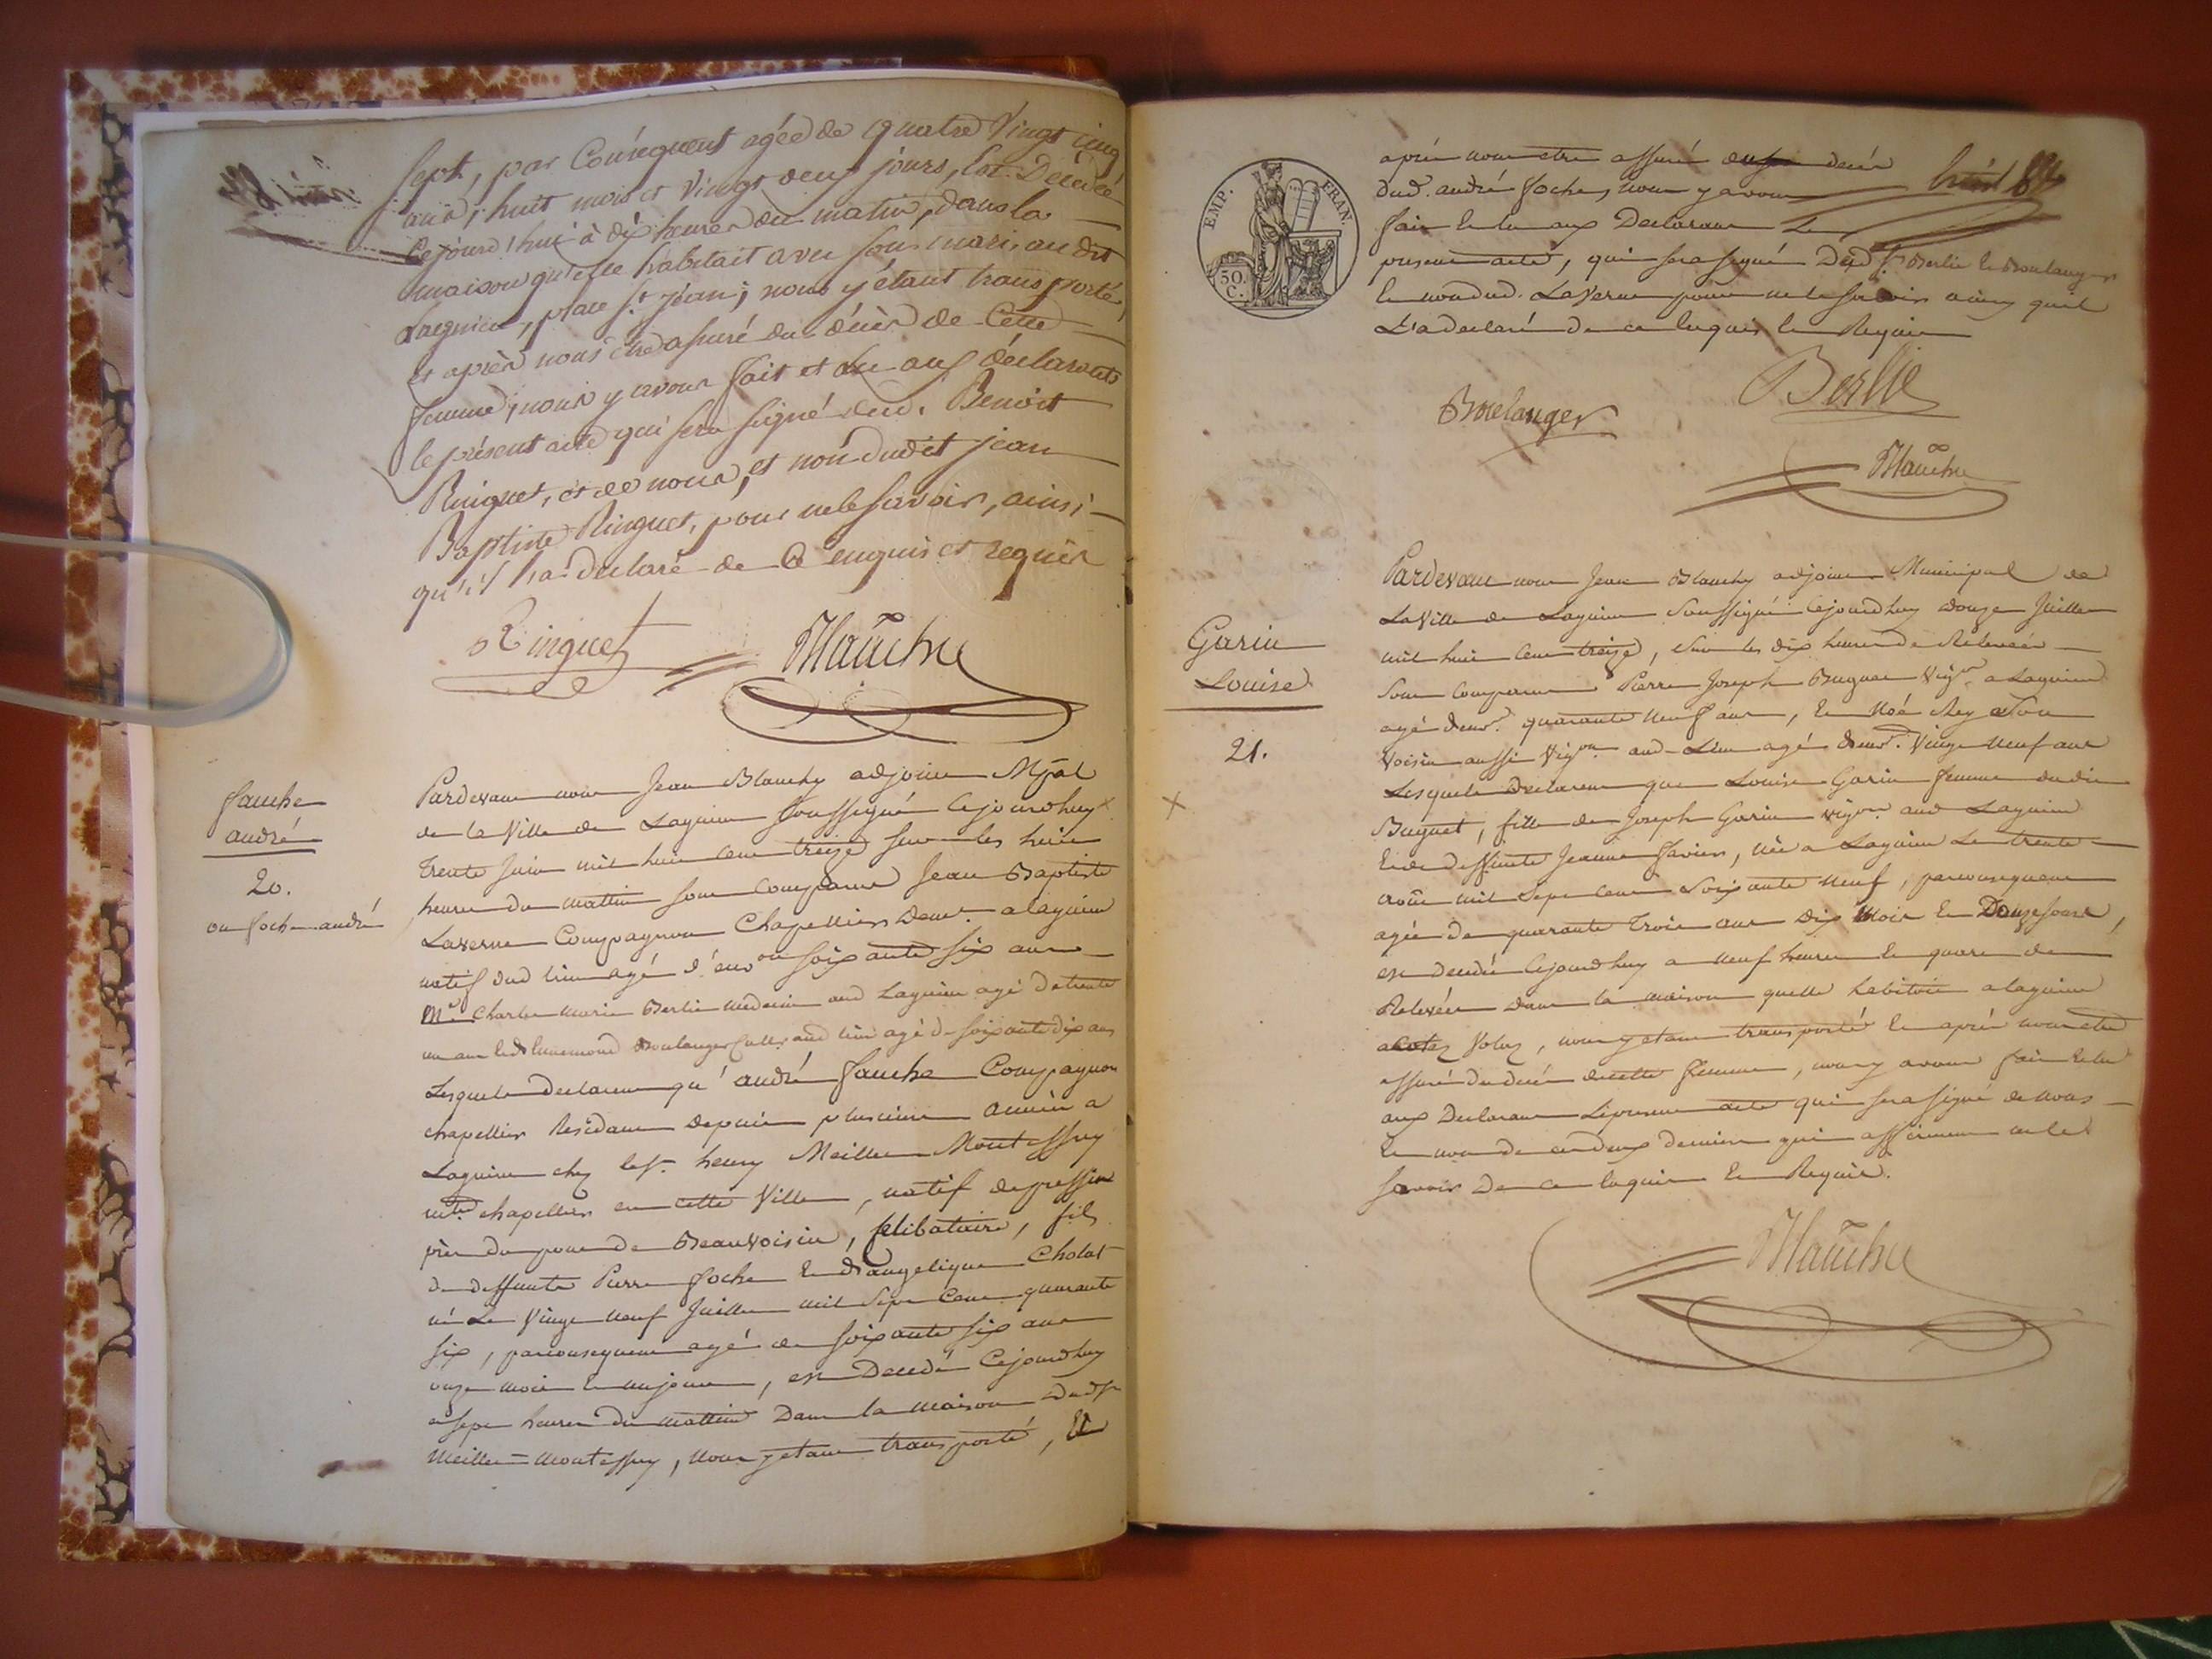 sept, par Conséquent agée de quatre Vingt cinq
ans, huit mois et Vingt deux jours, Est Decedée
Cejourd'hui à dix heures du matin, dans la
maison qu'elle habitait avec son mari, au dit
Lagnieu, place St. Jean; nous y étant transporté,
et après nous être assuré du décès de Cette
femme, nous y avons fait et Lu aux déclarants
le présent acte qui sera signé dud. Benoit
Ringuet, et de nous, et non dudit jean
Baptiste Ringuet, pour ne le savoir, ainsi
qu'il l'a déclaré de Ce enquis et requis
Ringuet
Blanchy
fauche
andré
20.
ou foche andré
Pardevant nous Jean Blanchy adjoint Mpal
de la Ville de Lagnieu Soussigné Cejourdhuy
Trente Juin mil huit Cent treize sur les huit
heures du mattin sont Comparus Jean Baptiste
Laverne Compagnon Chapellier demt. a lagnieu
natif dud lieu agé d'env.on soixante six ans
Mr. Charles marie Berlie medecin aud Lagnieu agé de trente
un ans Boulanger aud lieu agé de soixante dix ans
Lesquels declarent qu'andré fauche Compagnon
chapellier Residant depuis plusieurs années a
Lagnieu chez le sr. henry Meiller Montessuy
md. chapellier en cette Ville, natif de pressin
près du pont de Beauvoisin, selibataire, fils
de deffunts Pierre foche et d'angelique Cholat
né Le Vingt neuf Juillet mil Sept Cent quarante
six, parconsequent agé de soixante six ans
onze mois et un jour, est Decedé Cejourdhuy
a sept heures du mattin Dans la maison Dud sr
Meiller=montessuy, nous y etant transporté, Et
EMP. FRAN.
50.
C.
après nous etre assuré du decès
dud. andré foche, nous y avons
fait et lu aux Declarants Le
present acte, qui sera signé Desd. Srs Berlie et Boulanger
et non dud. Laverne pour ne le savoir ainsy quil
L'a declaré de ce Enquis et Requis
Boulanger
Berlie
Blanchy
Garin
Louise
21.
Pardevant nous Jean Blanchy adjoint Municipal de
La Ville de Lagnieu Soussigné Cejourdhuy douze Juillet
mil huit Cent treize, Sur les dix heures de Relevée
Sont Comparus Pierre Joseph Buguet Vig.on a Lagnieu
agé d'env.on quarante neuf ans, et Noé Rey Son
Voisin aussi Vig.on aud. Lieu agé d'env.on Vingt neuf ans
Lesquels declarent que Louise Garin femme dudit
Buguet, fille de Joseph Garin vig.on aud Lagnieu
et de deffunte Jeanne Javier, née a Lagnieu Le trente
août mil Sept Cent Soixante neuf, parconsequent
agée de quarante Trois ans Dix Mois et Douze Jours,
est decedée Cejourdhuy a neuf heures et quart de
Relevée dans la maison quelle habitoit a lagnieu
nous y etant transporté et après nous etre
assuré du decés decette femme, nous y avons fait et lu
aux Declarants Le present acte qui sera signé de nous
et non de ces deux derniers qui affirment ne le
savoir De ce Enquis Et Requis.
Blanchy